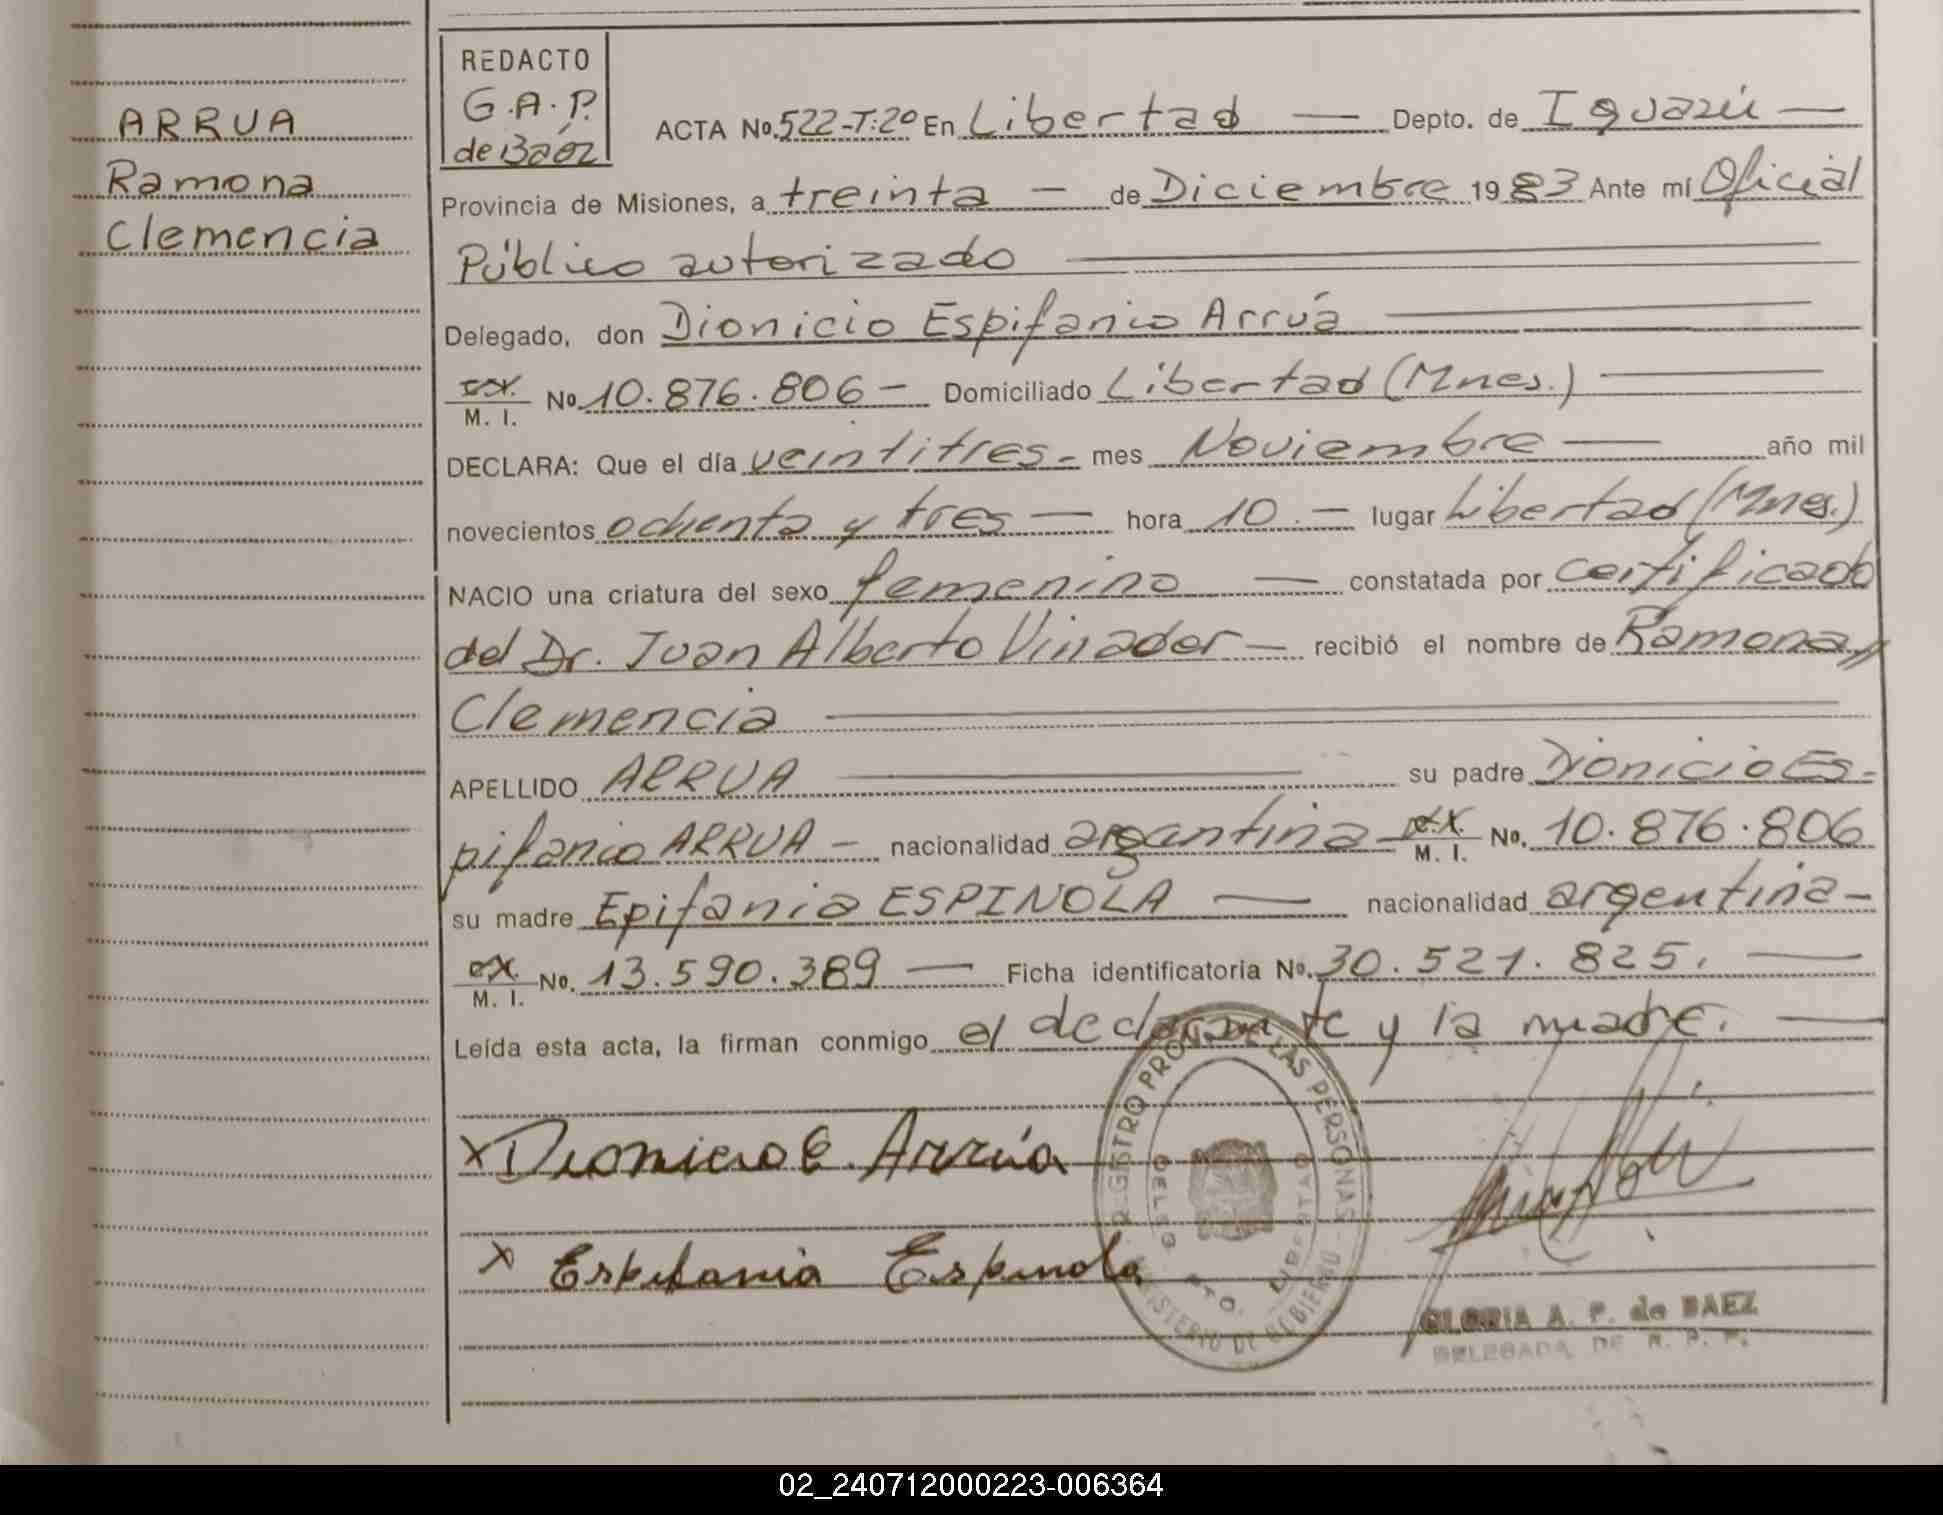 ARRUA
Ramona
Clemencia
REDACTO
G.A.P.
de Báez
ACTA No. 522-T:2º En Libertad — Depto. de Iguazú —
Provincia de Misiones, a treinta — de Diciembre 1983 Ante mí Oficial
Público autorizado
Delegado, don Dionicio Espifanio Arrúa
M. I. No 10.876.806 — Domiciliado Libertad (Mnes.)
DECLARA: Que el día veintitres - mes Noviembre — año mil
novecientos ochenta y tres — hora 10. — lugar Libertad (Mnes.)
NACIO una criatura del sexo femenino — constatada por certificado
del Dr. Juan Alberto Vinader — recibió el nombre de Ramona
Clemencia
APELLIDO ARRUA su padre Dionicio Es-
pifanio ARRUA — nacionalidad argentina - M. I. No. 10.876.806
su madre Epifania ESPINOLA — nacionalidad argentina -
M. I. No. 13.590.389 — Ficha identificatoria No. 30.521.825. —
Leída esta acta, la firman conmigo el declarante y la madre. —
REGISTRO PROV. DE LAS PERSONAS - MINISTERIO DE GOBIERNO
DELEG. PTO. LIBERTAD
x Dionicio E. Arrúa
x Espifania Espinola
GLORIA A. P. de BAEZ
DELEGADA DE R. P. P.
02_240712000223-006364